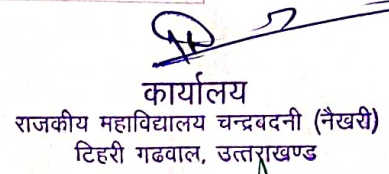 कार्यालय
राजकीय महाविद्यालय चन्द्रबदनी (नैखरी)
टिहरी गढवाल, उत्तराखण्ड